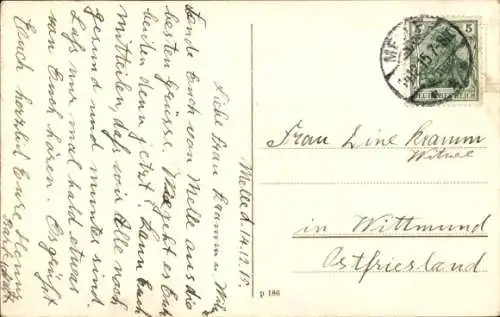 Melle d. 14.12.15
Liebe Frau Kramm u. 
sende Euch von Melle aus die
besten Grüsse. Wie geht es Euch
beiden denn jetzt? Kann Euch
mitteilen, daß wir Alle noch
gesund und munter sind.
Laß mir mal bald etwas
von Euch hören. Es grüßt
Euch herzlich Eure Henny
Frau Line Kramm
Witwe
in Wittmund
Ostfriesland
p 186
5 5
DEUTSCHES REICH
MELLE